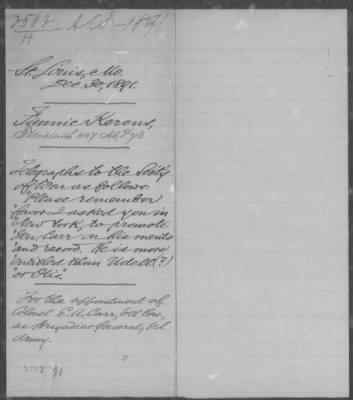 2502 ACP-1891
H
St. Louis, Mo.
Dec. 30, 1891.
Kerens,
Telegraphs to the Sec'ty
of War as follows:
"Please remember
"favor I asked you in
"New York, to promote
"Gen. Carr on his merits
"and record. He is more
"entitled than Udell(?)
"or Otis".
For the appointment of
Colonel E. A. Carr, 6th Cav.,
as Brigadier General, U.S.
Army.
91